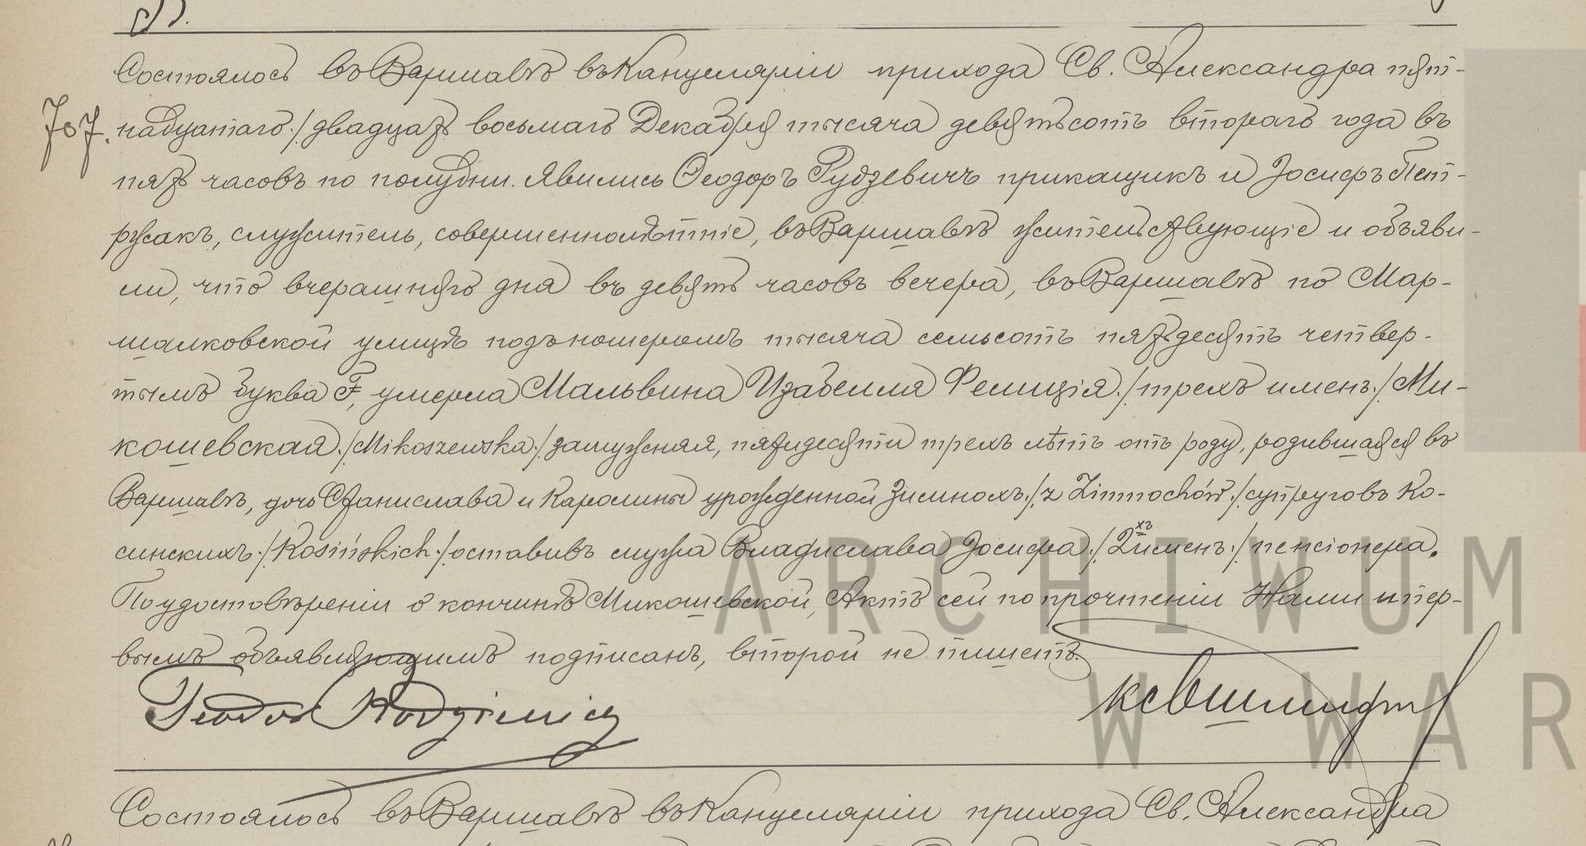 Состоялось въ Варшавѣ въ Канцеляріи прихода Св. Александра пят-
707. надцатаго /двадцать восьмаго Декабря тысяча девятьсотъ втораго года въ
пять часовъ по полудни. Явились Ѳеодоръ Рудзевичъ прикащикъ и Іосифъ Пет-
ржакъ, служитель, совершеннолѣтніе, въ Варшавѣ жительствующіе и объяви-
ли, что вчерашняго дня въ девять часовъ вечера, въ Варшавѣ по Мар-
шалковской улицѣ подъ номеромъ тысяча семьсотъ пятьдесятъ четвер-
тымъ буква F, умерла Мальвина Изабелля Фелиція /трехъ именъ/ Ми-
кошевская /Mikoszewska/ замужняя, пятидесяти трехъ лѣтъ отъ роду, родившаяся въ
Варшавѣ, дочь Станислава и Каролины урожденной Зимнохъ /z Zimnochów/ супруговъ Ко-
синскихъ /Kosińskich/ оставивъ мужа Владислава Іосифа /2хъ именъ/ пенсіонера.
По удостовѣреніи о кончинѣ Микошевской, Актъ сей по прочтеніи Нами и пер-
вымъ объявляющимъ подписанъ, второй не пишетъ.
Teodor
Состоялось въ Варшавѣ въ Канцеляріи прихода Св. Александра
ARCHIWUM
W WAR